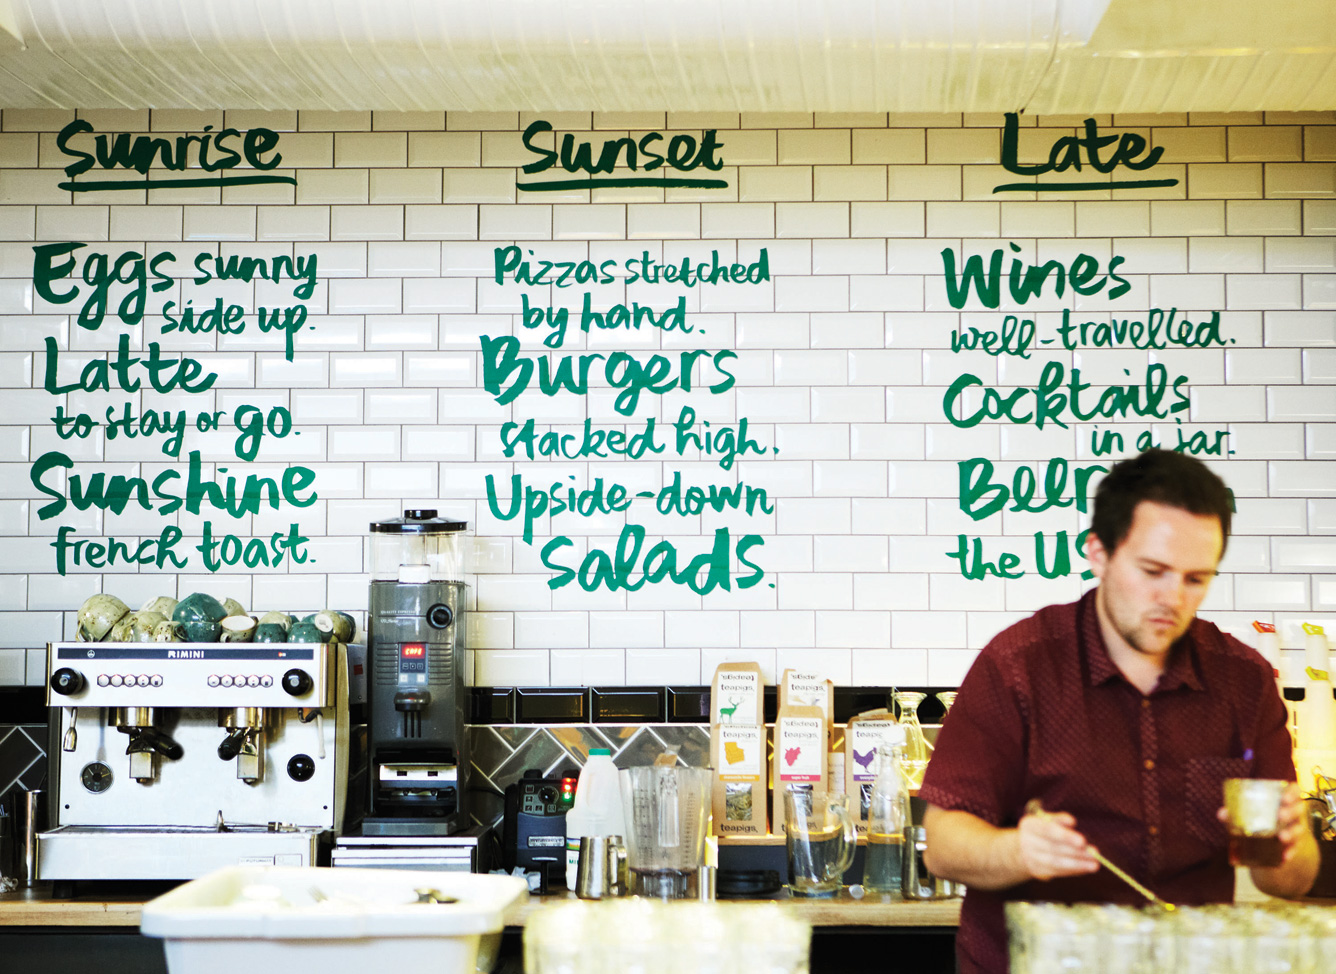 Sunrise
Eggs sunny
side up.
Latte
to stay or go.
Sunshine
french toast.
Sunset
Pizzas stretched
by hand.
Burgers
stacked high.
Upside-down
salads.
Late
Wines
well-travelled.
Cocktails
in a jar.
the
RIMINI
CAFE
teapigs.
teapigs.
teapigs.
teapigs.
teapigs.
teapigs.
teapigs.